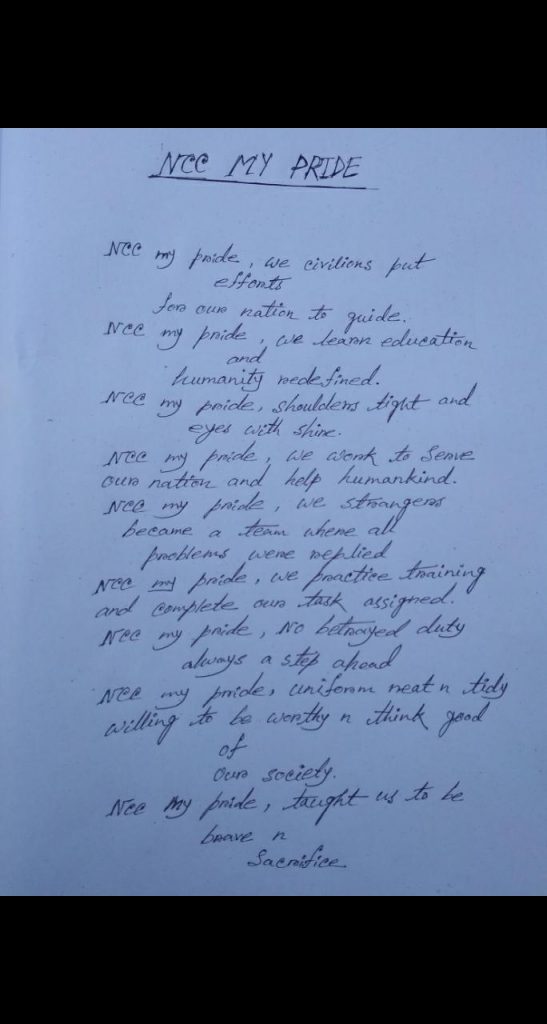 NCC MY PRIDE
NCC my pride, we civilions put
efforts
for our nation to guide.
NCC my pride, we learn education
and
humanity redefined.
NCC my pride, shoulders tight and
eyes with shine.
NCC my pride, we work to serve
our nation and help humankind.
NCC my pride, we strangers
became a team where all
problems were replied
NCC my pride, we practice training
and complete our task assigned.
NCC my pride, No betrayed duty
always a step ahead
NCC my pride, uniform neat n tidy
willing to be worthy n think good
of
our society.
NCC My pride, taught us to be
brave n
Sacrifice